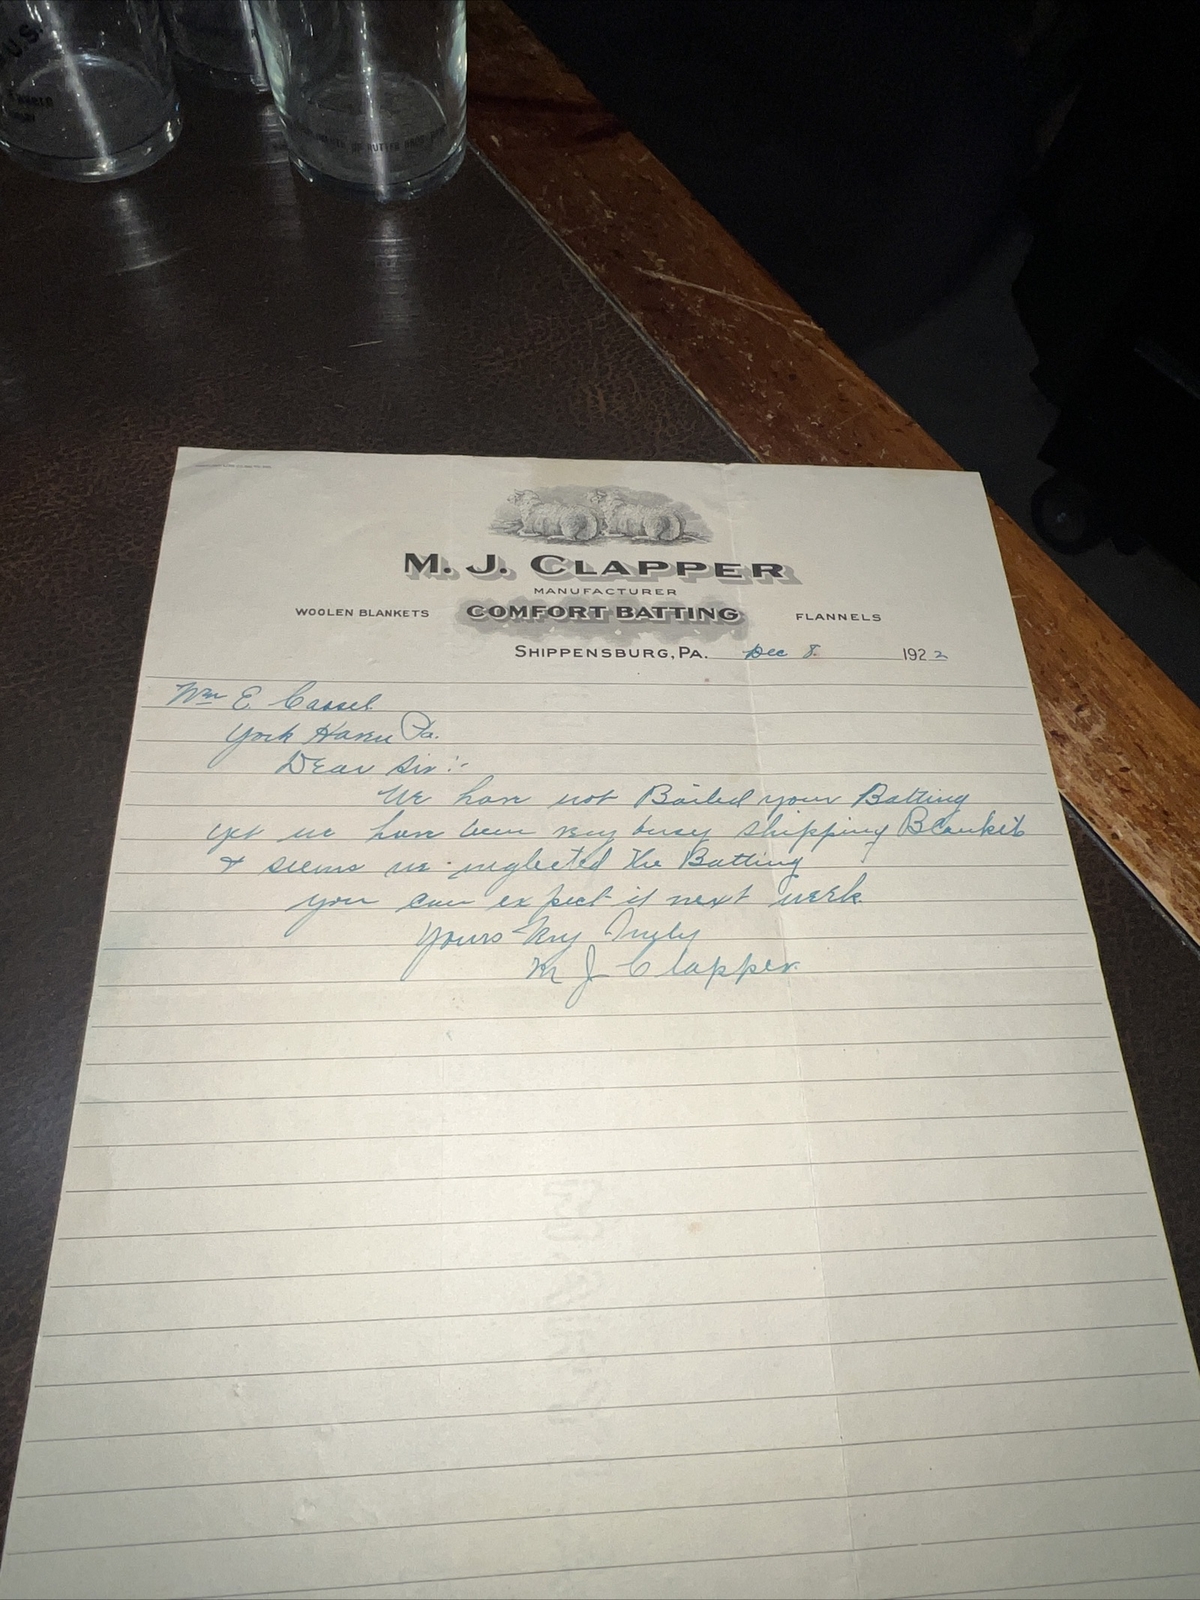 U.S.
M. J. CLAPPER
MANUFACTURER
WOOLEN BLANKETS COMFORT BATTING FLANNELS
SHIPPENSBURG, PA. Dec 8. 1922
Wm E Cassel
York Haven Pa.
Dear Sir:-
We have not Bailed your Batting
yet we have been very busy shipping Blankets
& seems we neglected the Batting
you can expect it next week
Yours Very Truly
M J Clapper